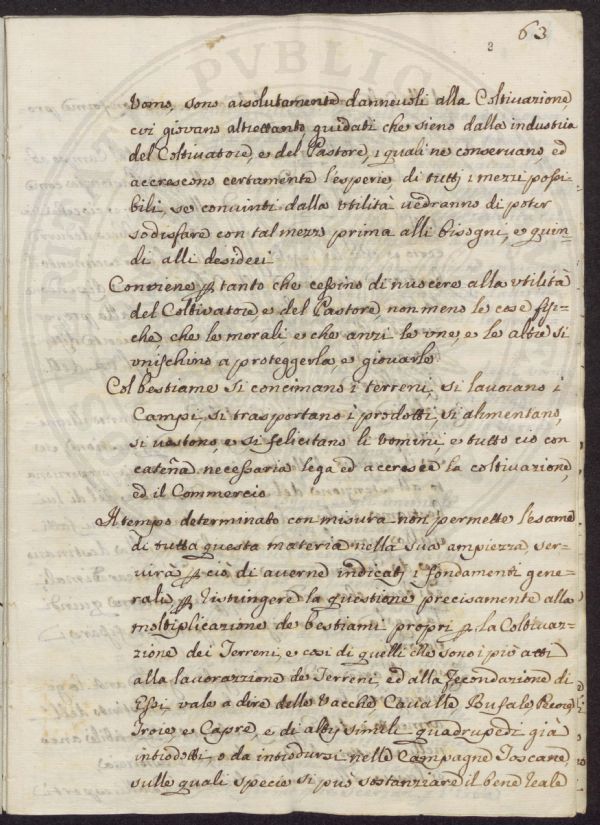 63
2
Uomo, sono assolutamente dannevoli alla Coltivazione,
cui giovano altrettanto, guidati che sieno dalla industria
del Coltivatore, e del Pastore, i quali ne conservano, ed
accrescono certamente l'esperie di tutti i mezzi possi=
bili, se convinti dalla utilità vedranno di poter
sodisfare con tal mezzo prima alli bisogni, e quin=
di alli desideri
Conviene p tanto che cessino di nuocere alla utilità
del Coltivatore, e del Pastore non meno le cose fisi=
che, che le morali e che anzi le une, e le altre si
unischino a proteggerla, e giovarle
Col bestiame si concimano i terreni, si lavorano i
Campi, si trasportano i prodotti, si alimentano,
si vestono, e si felicitano li uomini, e tutto ciò con
cateña necessaria lega ed accresce la coltivazione,
ed il Commercio
Il tempo determinato con misura non permette l'esame
di tutta questa materia nella sua ampiezza, ser=
virà p ciò di averne indicati i fondamenti gene=
rali, p ristringere la questione precisamente alla
moltiplicazione de bestiami propri p la Coltivaz=
zione dei Terreni, e così di quelli che sono i più atti
alla lavorazzione de Terreni, ed alla fecondazione di
Essi, vale a dire delle Vacche Cavalle Bufale Pecore
Troie, e Capre, e di altri simili quadrupedi già
introdotti, o da introdursi nelle Campagne Toscane,
sulle quali specie si può sostanziare il bene reale
PVBLIC